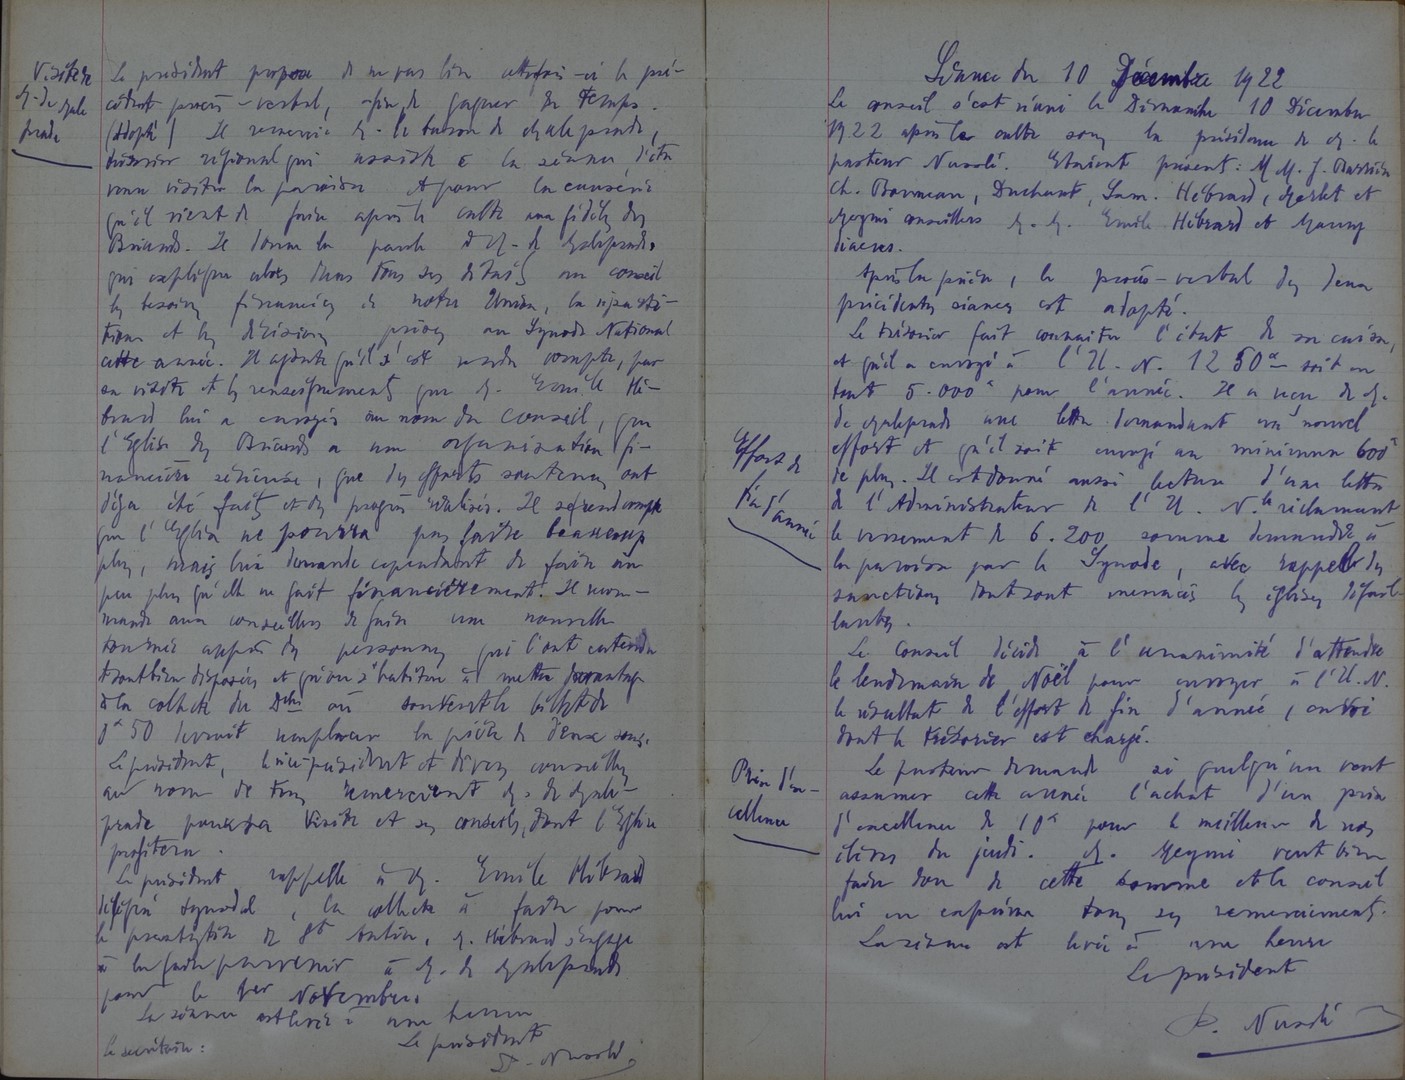 Visite de
M. de Male
prade
Le président propose de ne pas lire cette fois-ci le pré-
cédent procès-verbal, afin de gagner du temps.
(Adopté) Il remercie M. le baron de Maleprade,
trésorier régional qui assiste à la séance d'être
venu visiter la paroisse et pour la causerie
qu'il vient de faire après le culte aux fidèles des
Briards. Il donne la parole à M. de Maleprade
qui explique alors dans tous ses détails au conseil
les besoins financiers de notre Union, la réparti-
tion et les décisions prises au Synode National
cette année. Il ajoute qu'il s'est rendu compte, par
sa visite et les renseignements que M. Emile Hé-
brard lui a envoyés au nom du Conseil, que
l'Eglise des Briards a une organisation fi-
nancière sérieuse, que des efforts soutenus ont
déjà été faits et des progrès réalisés. Il se rend compte
que l'Eglise ne pourra pas faire beaucoup
plus, mais lui demande cependant de faire un
peu plus qu'elle ne fait financièrement. Il recom-
mande aux conseillers de faire une nouvelle
tournée auprès des personnes qui l'ont entendu
sont bien disposées et qu'on s'habitue à mettre davantage
à la collecte du Dche où souvent le billet de
0f50 devrait remplacer la pièce de deux sous.
Le président, le vice-président et divers conseillers
au nom de tous remercient M. de Male-
prade pour sa visite et ses conseils, dont l'Eglise
profitera.
Le président rappelle à M. Emile Hébrard
délégué synodal, la collecte à faire pour
le presbytère de St Antoine. M. Hébrard s'engage
à la faire parvenir à M. de Maleprade
pour le 1er Novembre.
La séance est levée à une heure
Le secrétaire : Le président
Séance du 10 Décembre 1922
Le conseil s'est réuni le Dimanche 10 Décembre
1922 après le culte sous la présidence de M. le
pasteur. Etaient présents : M M. J.
Ch., Duchant, Sam. Hébrard, Merlet et
Meymi conseillers M. M. Emile Hébrard et
diacres.
Après la prière, le procès-verbal des deux
précédentes séances est adopté.
Le trésorier fait connaître l'état de sa caisse,
et qu'il a envoyé à l'U. N. 1250f - soit en
tout 5.000f pour l'année. Il a reçu de M.
de Maleprade une lettre demandant un nouvel
effort et qu'il soit envoyé au minimum 600f
de plus. Il est donné aussi lecture d'une lettre
de l'Administrateur de l'U. N. réclamant
le versement de 6.200 somme demandée à
la paroisse par le Synode, avec rappel des
sanctions dont sont menacées les églises défail-
lantes.
Effort de
fin d'année
Le Conseil décide à l'unanimité d'attendre
le lendemain de Noël pour envoyer à l'U. N.
le résultat de l'effort de fin d'année, envoi
dont le trésorier est chargé.
Prix d'ex-
cellence
Le pasteur demande si quelqu'un veut
assumer cette année l'achat d'un prix
d'excellence de 10f pour le meilleur de nos
élèves du jeudi. M. Meymi veut bien
faire don de cette somme et le conseil
lui en exprime tous ses remerciements.
La séance est levée à une heure
Le président